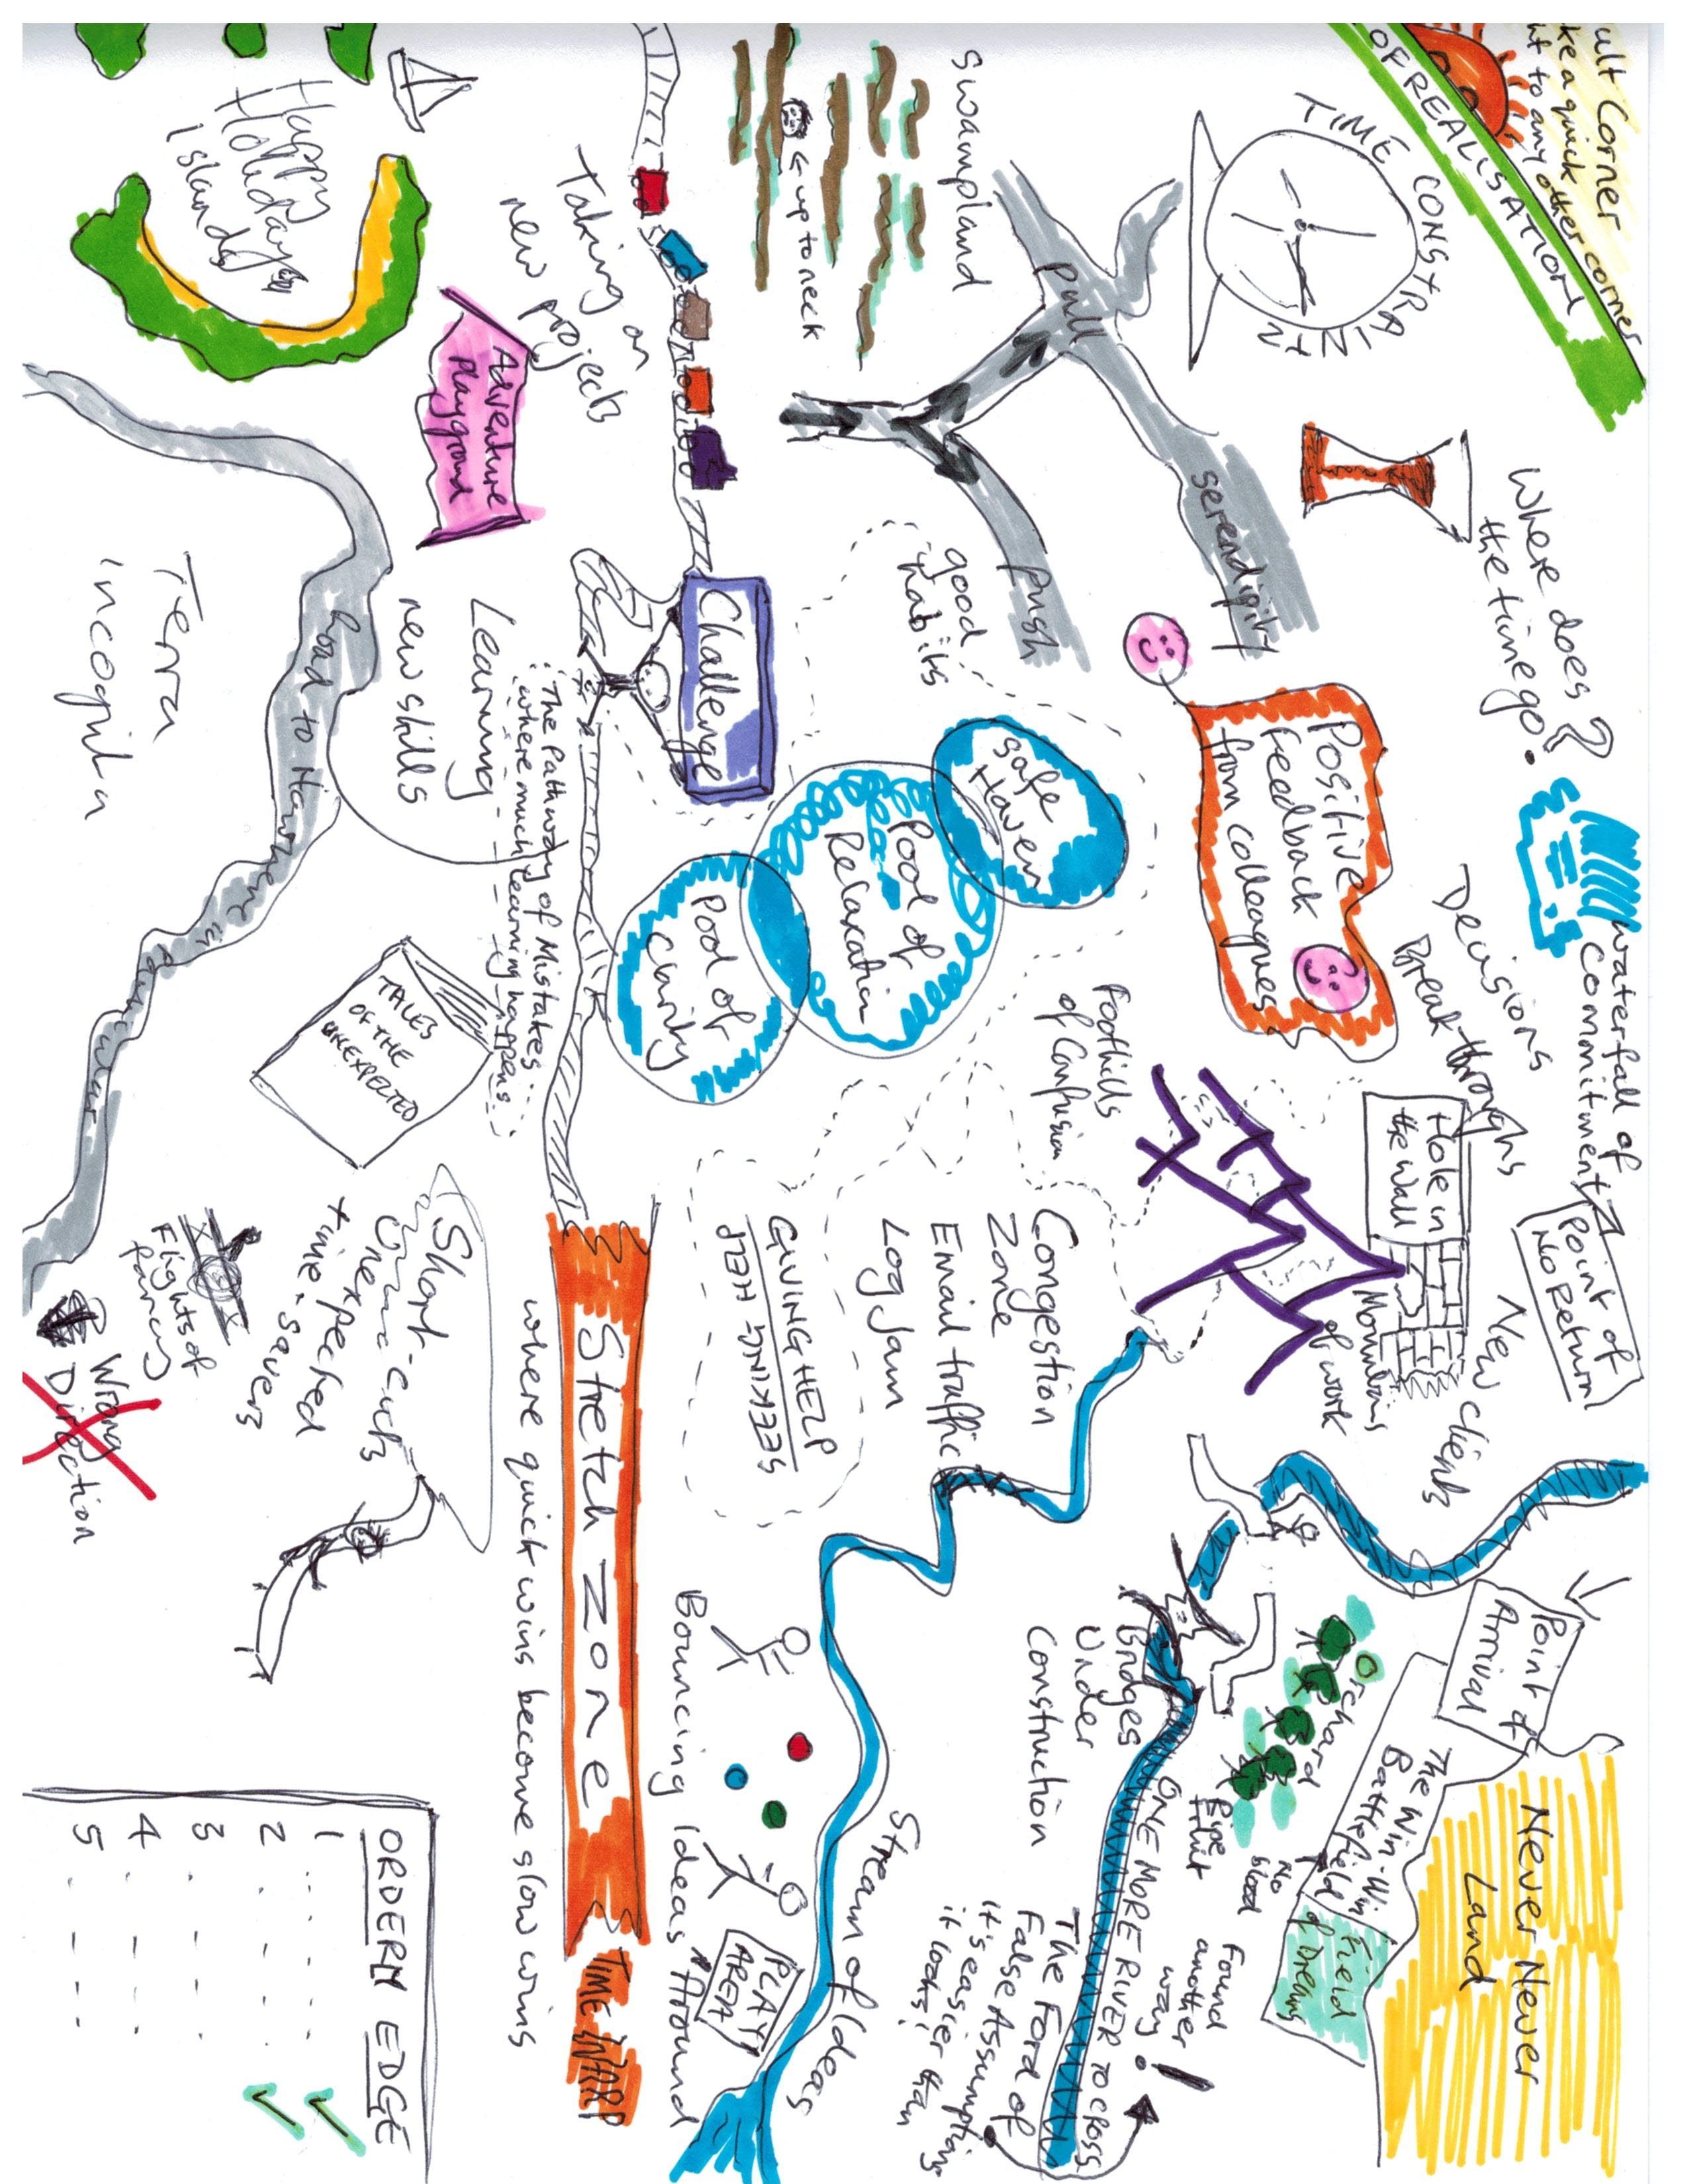 ult Corner
ke a quick
nt to any other corner
OF REALISATION
TIME CONSTRAINT
Where does
the time go?
waterfall of
commitment
Point of
No Return
Decisions
Breakthroughs
New clients
Hole in
the wall
Mountains
of work
Point of
Arrival
Never Never
Land
The Win-Win
Battlefield
Field
of Dreams
Orchard
Ripe
fruit
No
blood
Found
another
way!
ONE MORE RIVER TO CROSS
Bridges
Under
Construction
The Ford of
False Assumptions
it's easier than
it looks!
Swampland
← up to neck
Pull
Push
serendipity
Positive
feedback
from colleagues
good
habits
Safe
Haven
Pool of
Relaxation
Pool of
Clarity
Foothills
of Confusion
Congestion
Zone
Email traffic
Log Jam
GIVING HELP
SEEKING HELP
Stream of Ideas
Bouncing Ideas Around
PLAY
AREA
Taking on
new projects
Challenge
The Pathway of Mistakes
where much learning happens
Stretch Zone
TIME WARP
where quick wins become slow wins
Learning
new skills
Adventure
Playground
Happy
Holiday
Islands
Road to Nowhere in Particular
Terra
Incognita
TALES
OF THE
UNEXPECTED
Short-cuts
Unexpected
time-savers
Flights of
Fancy
Wrong
Direction
ORDERN EDGE
1
2
3
4
5